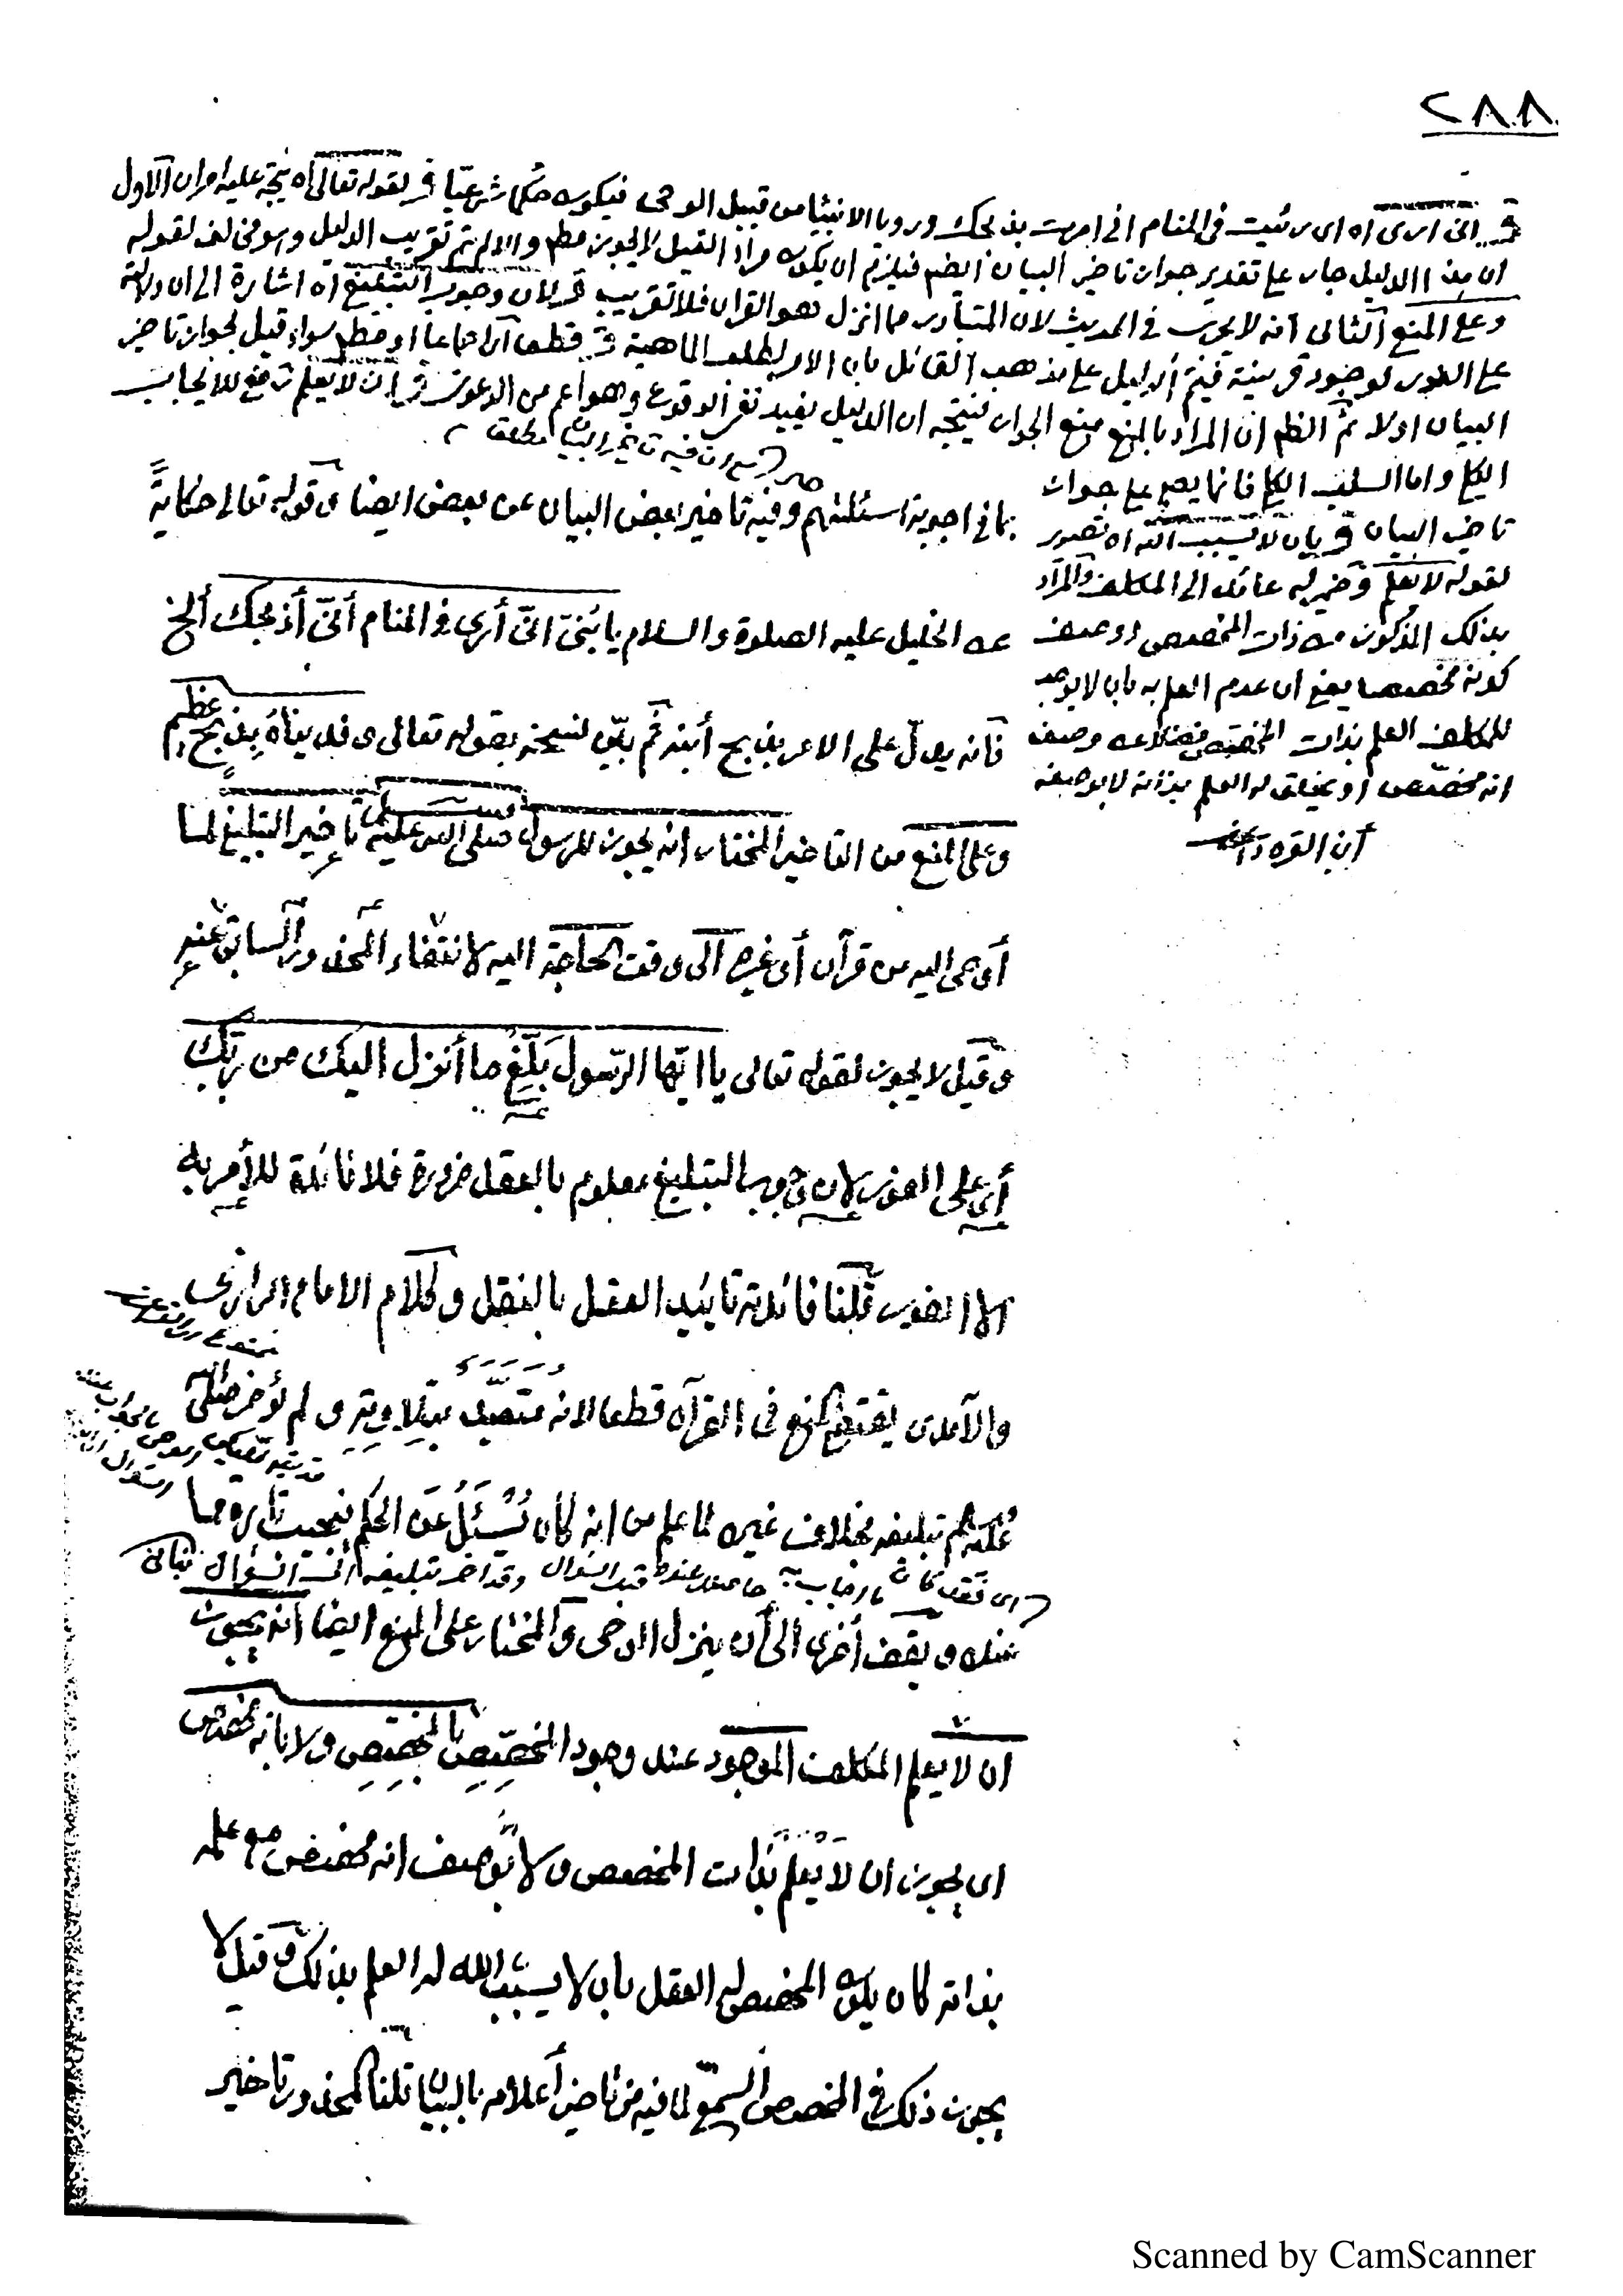 ٢٨٨
قـ انى ارى اه اى رئيت فى المنام انى امرت بذبحك ورويا الانبيا من قبيل الوحى فيكون حكما شرعيا قـ لقوله تعالى اه يتجه عليه امران الاول
ان هذا الدليل جار على تقدير جواز تاخير البيان ايضا فيلزم ان يكون مراد القيل لا يجوز مطم والا لم يتم تقريب الدليل وهو مخالف لقوله
وعلى المنع الثانى انه لا يجرى فى الحديث لان المتبادر مما انزل هو القران فلا تقريب قـ لان وجوب التبليغ اه اشارة الى ان دلالة
على الفور لوجود قرينة فيتم الدليل على مذهب القائل بان الامر لطلب الماهية قـ قطعا اى اجماعا او مطم سواء قيل بجواز تاخير
البيان اولا ثم الظم ان المراد بالمنع منع الجواز فيتجه ان الدليل يفيد نفى الوقوع وهو اعم من الدعوى قـ ان لا يعلم رفع للايجاب
الكلى واما السلب الكلى فانما يصح على جواز
تاخير البيان قـ بان لا يسبب الله اه تصوير
لقوله لا يعلم وضمير له عائد الى المكلف والمراد
بذلك المذكور من ذات المخصص ووصف
كونه مخصصا يعنى ان عدم العلم به بان لا يوجد
للمكلف العلم بذات المخصص فضلا عن وصف
انه مخصص او يخلق له العلم بذاته لا بوصف
ابن القره داغى
بما فى اجوبة اسئلتهم وفيه تاخير بعض البيان عن بعض ايضا وقوله تعالى حكاية
عن الخليل عليه الصلوة والسلام يا بنىّ انىّ أرى فى المنام أنىّ أذبحك ألخ
فانه يدلّ على الامر بذبح أبنه ثم بيّن نسخه بقوله تعالى وفديناه بذبح عظيم
وعلى المنع من التاخير المختار انه يجوز للرسول صلى الله عليه وسلم تاخير التبليغ لما
أوحى اليه من قرآن أو غيره الى وقت الحاجة اليه لانتفاء المحذور السابق عنه
وقيل لا يجوز لقوله تعالى يا ايّها الرّسول بَلّغ ما أنزل اليك من ربّك
أى على الفور لان وجوب التبليغ معلوم بالعقل ضرورة فلا فائدة للأمر به
الا الفور قلنا فائدته تائيد العقل بالنقل وكلام الامام الرازى
والآمدى يقتضى المنع فى القرآن قطعا لانه متعبّد بتلاوته ولم يؤخر صلى الله
عليه وسلم تبليغه بخلاف غيره لما علم من انه كان يُسْئَلُ عن الحكم فيجيب تارة مما
عنده ويقف أخرى الى أن ينزل الوحى والمختار على المنع ايضا انه يجوز
ان لا يعلم المكلف الموجود عند وجود المخصّص بالمخصّص ولا بانه مخصّص
اى يجوز ان لا يعلم بذات المخصص ولا بوصف انه مخصص مع علمه
بذاته كان يكون المخصص له العقل بان لا يسبّب الله له العلم بذلك وقيل لا
يجوز ذلك فى المخصص السمعى لما فيه من تاخير أعلامه بالبيان قلنا المحذور تاخير
Scanned by CamScanner